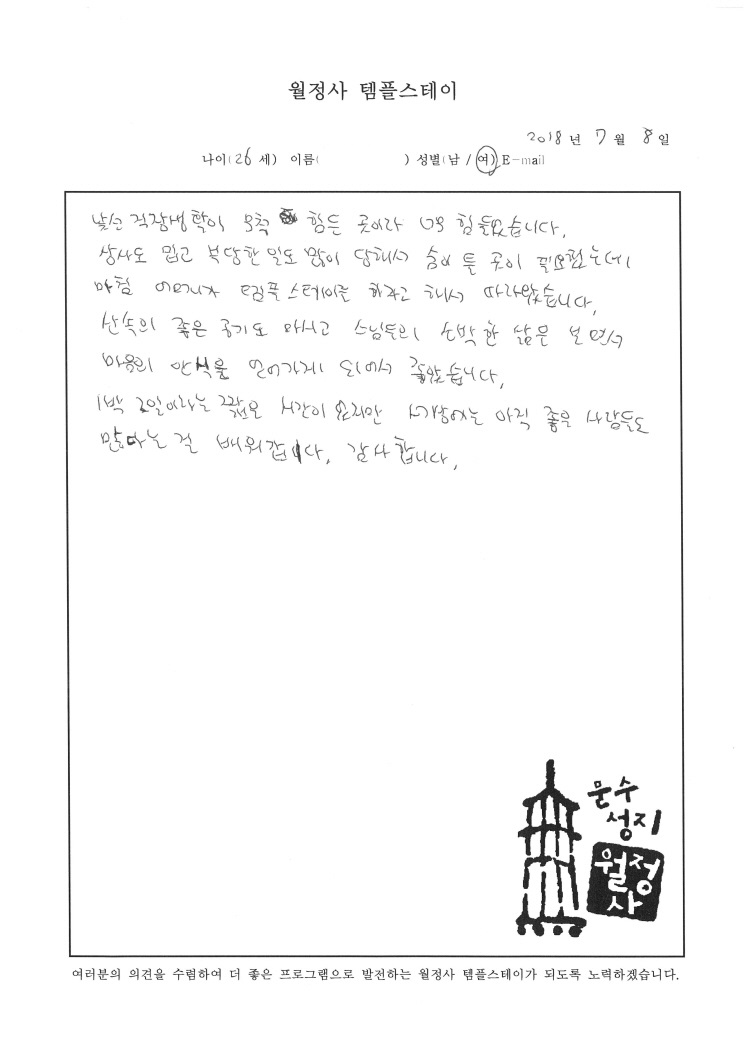 월정사 템플스테이
2018 년 7 월 8 일
나이(26 세) 이름( ) 성별(남 / 여) E-mail
낯선 직장생활이 무척 힘든 곳이라 너무 힘들었습니다.
상사도 밉고 부당한 일도 많이 당해서 숨이 틀 곳이 필요했는데
마침 어머니가 템플스테이를 하자고 해서 따라왔습니다.
산속의 좋은 공기도 마시고 스님들의 소박한 삶을 보면서
마음의 안식을 얻어가게 되어서 좋았습니다.
1박 2일이라는 짧은 시간이었지만 세상에는 아직 좋은 사람들도
많다는 걸 배워갑니다. 감사합니다.
문수
성지
월정
사
여러분의 의견을 수렴하여 더 좋은 프로그램으로 발전하는 월정사 템플스테이가 되도록 노력하겠습니다.